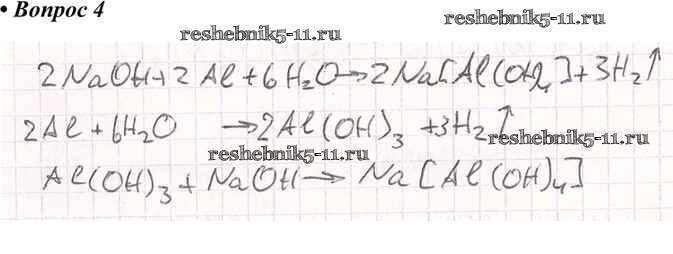 • Вопрос 4
reshebnik5-11.ru
reshebnik5-11.ru
2NaOH+2Al+6H₂O→2Na[Al(OH)₄]+3H₂↑
2Al+6H₂O →2Al(OH)₃+3H₂↑
reshebnik5-11.ru
reshebnik5-11.ru
Al(OH)₃+NaOH→Na[Al(OH)₄]